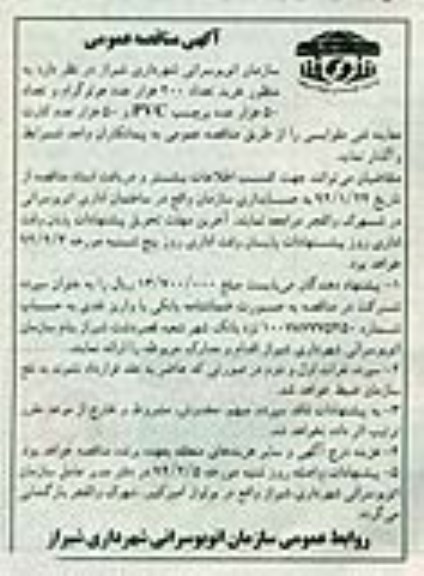 آگهی مناقصه عمومی
سازمان اتوبوسرانی شهرداری شیراز در نظر دارد به
منظور خرید تعداد ۲۰۰ هزار عدد هولوگرام و تعداد
۵۰ هزار عدد برچسب PVC و ۵۰ هزار عدد کارت
معاینه فنی مقوایی را از طریق مناقصه عمومی به پیمانکاران واجد شرایط
واگذار نماید.
متقاضیان می‌توانند جهت کسب اطلاعات بیشتر و دریافت اسناد مناقصه از
تاریخ ۹۲/۱/۲۴ به حسابداری سازمان واقع در ساختمان اداری اتوبوسرانی
در شهرک والفجر مراجعه نمایند. آخرین مهلت تحویل پیشنهادات پایان وقت
اداری روز پیشنهادات پایان وقت اداری روز پنج شنبه مورخه
خواهد بود.
۱- پیشنهاد دهندگان می‌بایست مبلغ ۱۳/۷۰۰/۰۰۰ ریال را به عنوان سپرده
شرکت در مناقصه به صورت ضمانتنامه بانکی یا واریز نقدی به حساب
شماره نزد بانک شهر شعبه قصردشت شیراز بنام سازمان
اتوبوسرانی شهرداری شیراز اقدام و مدارک مربوطه را ارائه نمایند.
۲- سپرده نفرات اول و دوم در صورتی که حاضر به عقد قرارداد نشوند به نفع
سازمان ضبط خواهد شد.
۳- به پیشنهادات فاقد سپرده، مبهم، مخدوش، مشروط و خارج از موعد مقرر
ترتیب اثر داده نخواهد شد.
۴- هزینه درج آگهی و سایر هزینه‌های متعلقه بعهده برنده مناقصه خواهد بود.
۵- پیشنهادات واصله روز شنبه مورخه ۹۲/۲/۵ در دفتر مدیر عامل سازمان
اتوبوسرانی شهرداری شیراز واقع در بولوار امیرکبیر، شهرک والفجر بازگشایی
می‌گردد.
روابط عمومی سازمان اتوبوسرانی شهرداری شیراز